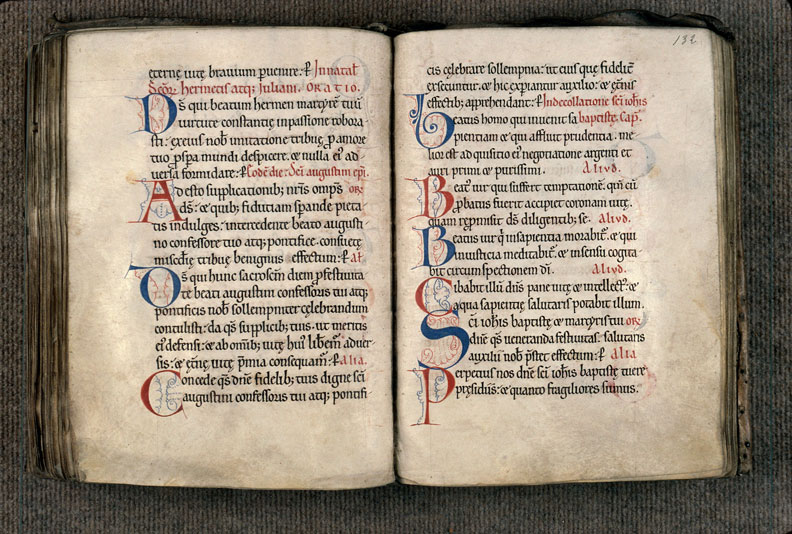 eternę uitę brauium ꝑuenire. ꝑ Innatal̄
Sc̄oꝝ hermetis atq; Juliani. ORATIO.
Ds̄ qui beatum hermen martyrē tuū
uirtute constantię inpassione robora
sti. exeius nob̄ imitatione tribuę ꝓ amore
tuo ꝓspa mundi despicere. & nulla ei' ad
uersa formidare. ꝑ Codē die. Sc̄i augustini ep̄i.
Ad esto supplicationib; nr̄is omp̄s OR
ds̄. & quib; fiduciam sꝑande pieta
tis indulges. intercedente beato augusti
no confessore tuo atq; pontifice. consuetę
mīsc̄dię tribuę benignus effectum. ꝑ al̄
Ds̄ qui hunc sacrosc̄m diem ꝓ festiuita
te beati augustini confessoris tui atq;
pontificis nob̄ sollempniter celebrandum
contulisti. da qs̄ supplicib; tuis. ut meritis
ei' defensi. & ab om̄ib; uitę hui' libem̄ aduer
sis. & ęt̄nę uitę p̄mia consequam̄. ꝑ alia.
Concede qs̄ dn̄e fidelib; tuis digne sc̄i
augustini confessoris tui atq; pontifi
132
cis cęlebrare sollempnia. ut eius quę fideliū
exsecuntur. & hic expiantur auxilio. & ęt̄nis
effectib; apprehendant. ꝑ Indecollatione sc̄i ioh̄is
Beatus homo qui inuenit sa baptistę. Cap̄.
pientiam & qui affluit prudentia. me
lior est adquisitio ei' negotiatione argenti et
auri primi & purissimi. Aliud.
Beat' uir qui suffert temptationē. qm̄ cū
ꝓbatus fuerit accipiet coronam uitę.
quam repromisit ds̄ diligentib; se. aliud.
Beatus uir q' insapientia morabit'. & qui
iniusticia meditabit'. & insensu cogita
bit circumspectionem dī. Aliud.
Cibabit illū dn̄s pane uitę & intellect'. &
aqua sapientię salutaris potabit illum.
Sc̄i ioh̄is baptistę & martyris tui OR
dn̄e qs̄ ueneranda festiuitas. salutaris
auxilii nob̄ p̄stet effectum. ꝑ alia
Perpetuis nos dn̄e sc̄i ioh̄is baptistę tuere
p̄ęsidiis. & quanto fragiliores sumus.